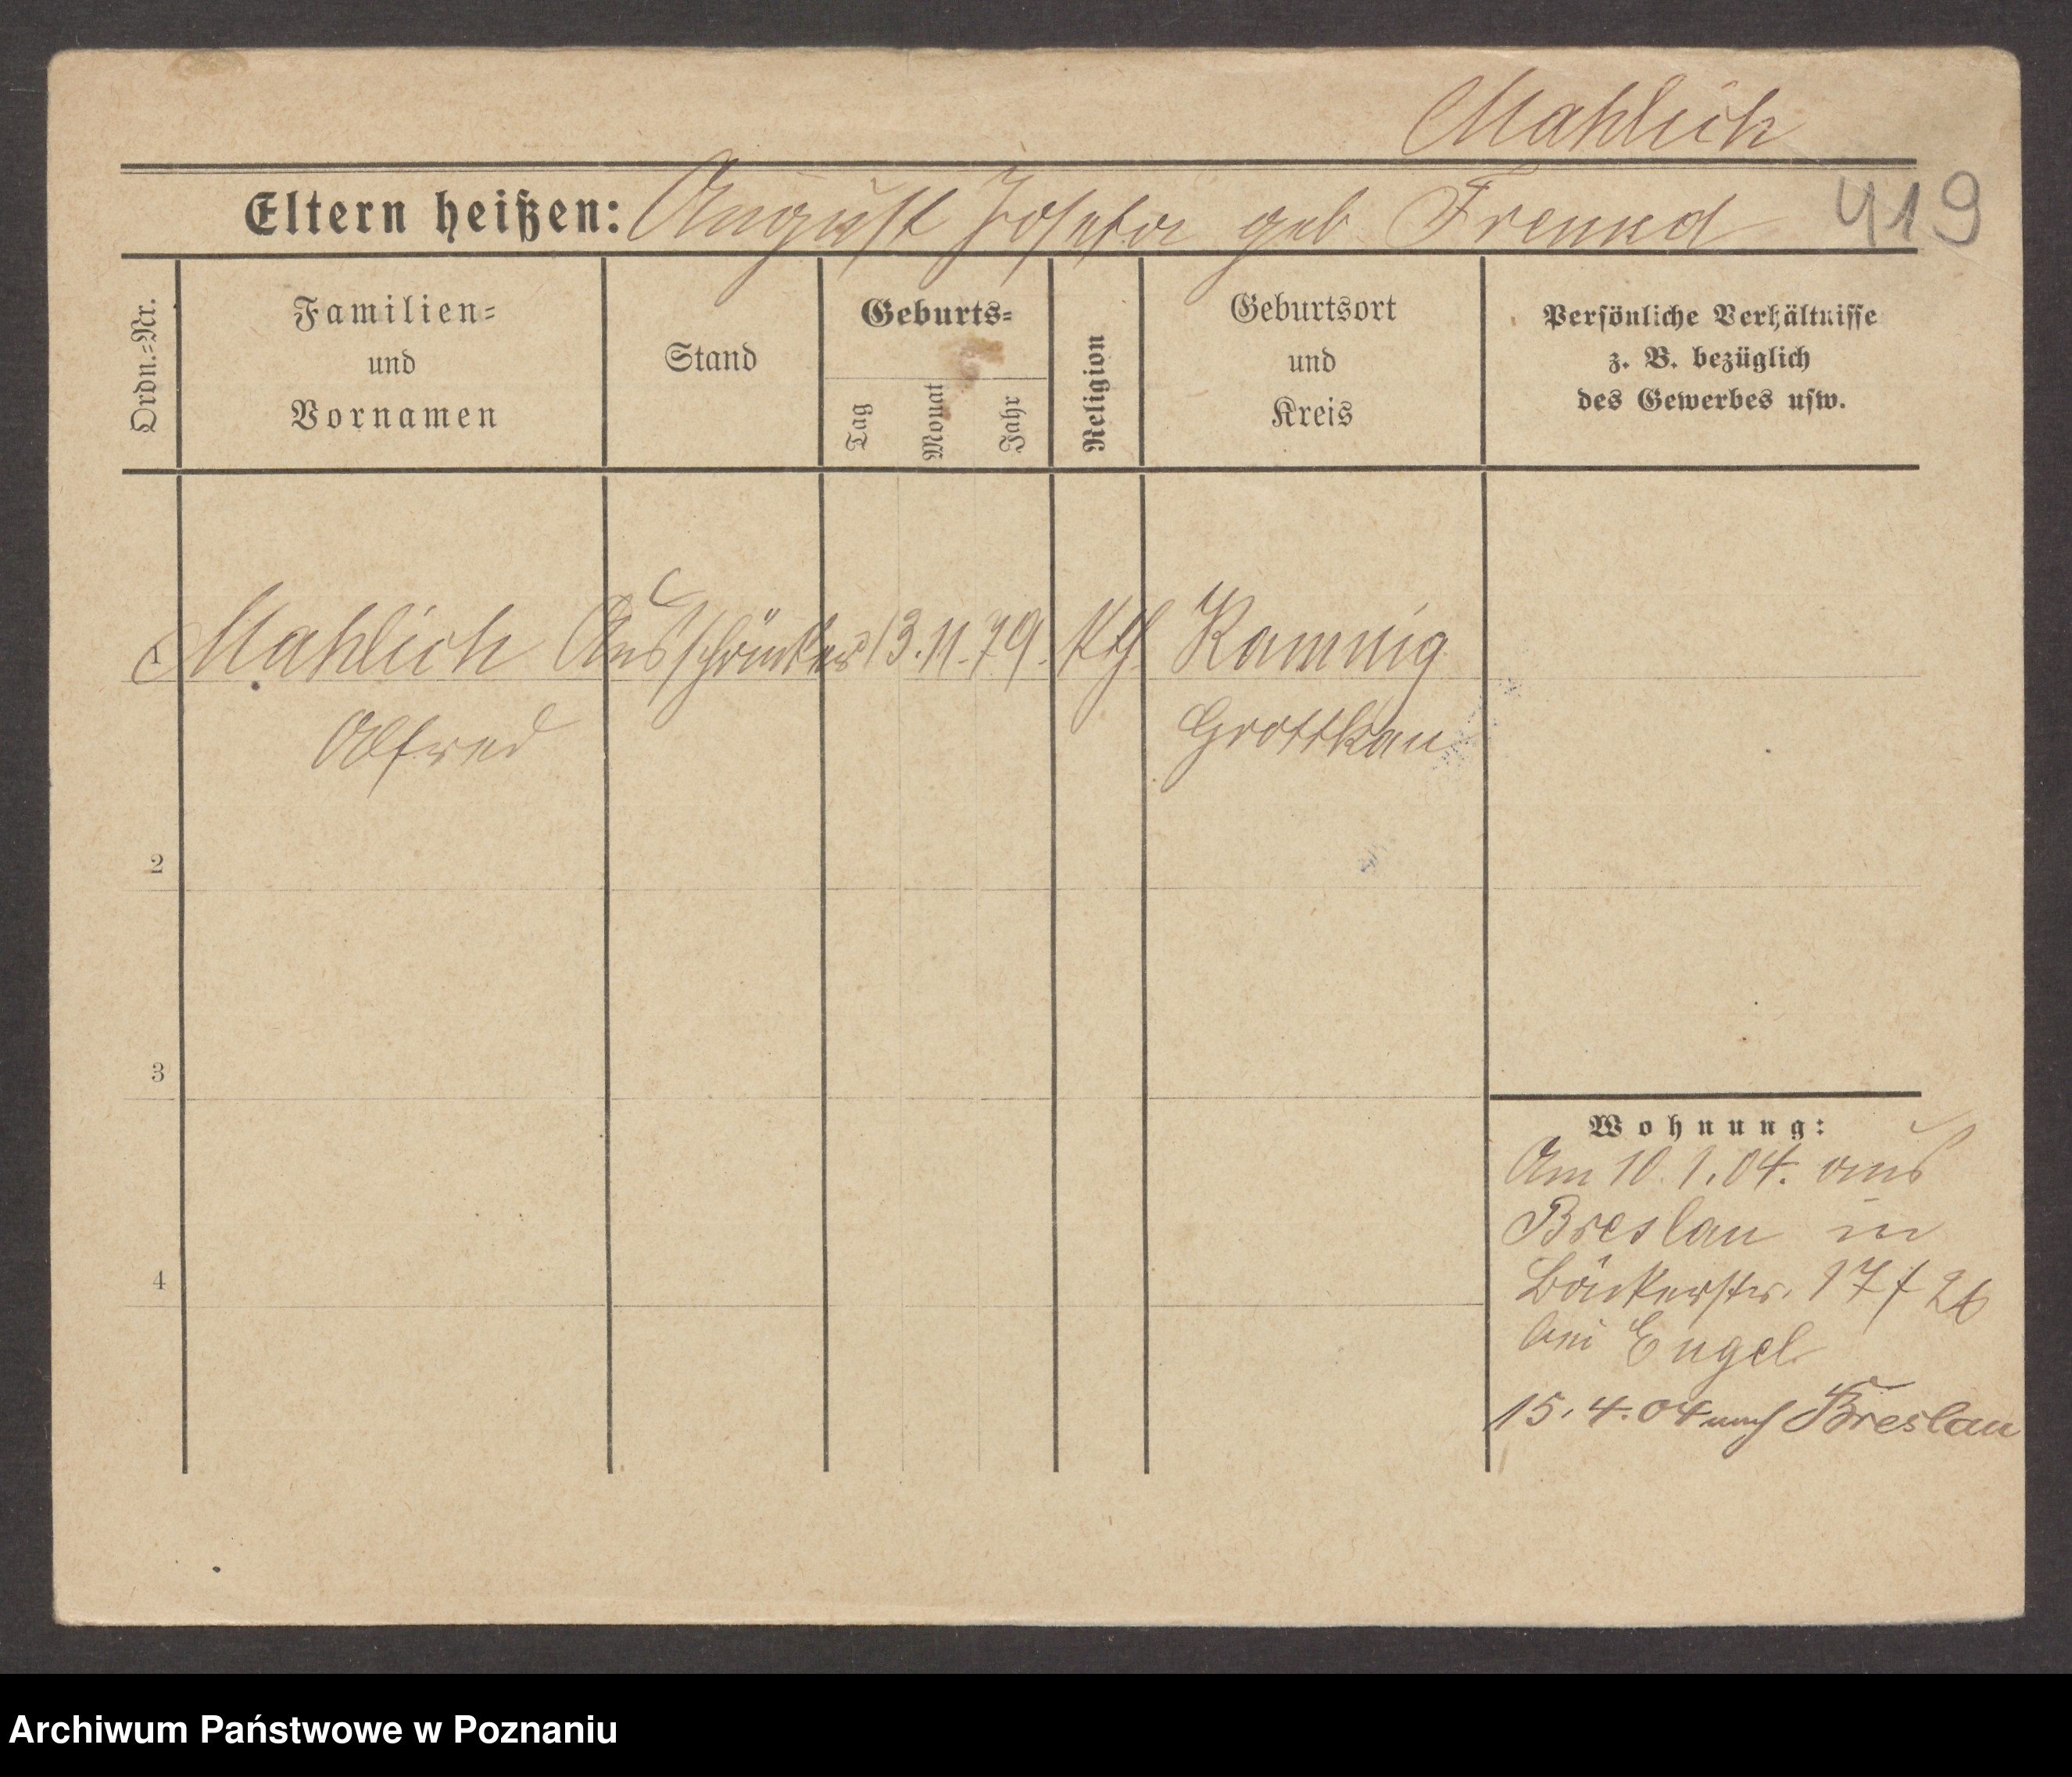 Mahlich
Eltern heißen: August Josefa geb Freund 419
Ordn.=Nr.
Familien=
und
Vornamen
Stand
Geburts=
Tag Monat Jahr
Religion
Geburtsort
und
Kreis
Persönliche Verhältnisse
z. B. bezüglich
des Gewerbes usw.
1 Mahlich Ausschänker 13. 11. 79. kth. Kamnig
Alfred Grottkau
2
3
4
Wohnung:
Am 10. 1. 04. aus
Breslau in
Bäckerstr. 17/26
bei Engel
15. 4. 04 nach Breslau
Archiwum Państwowe w Poznaniu